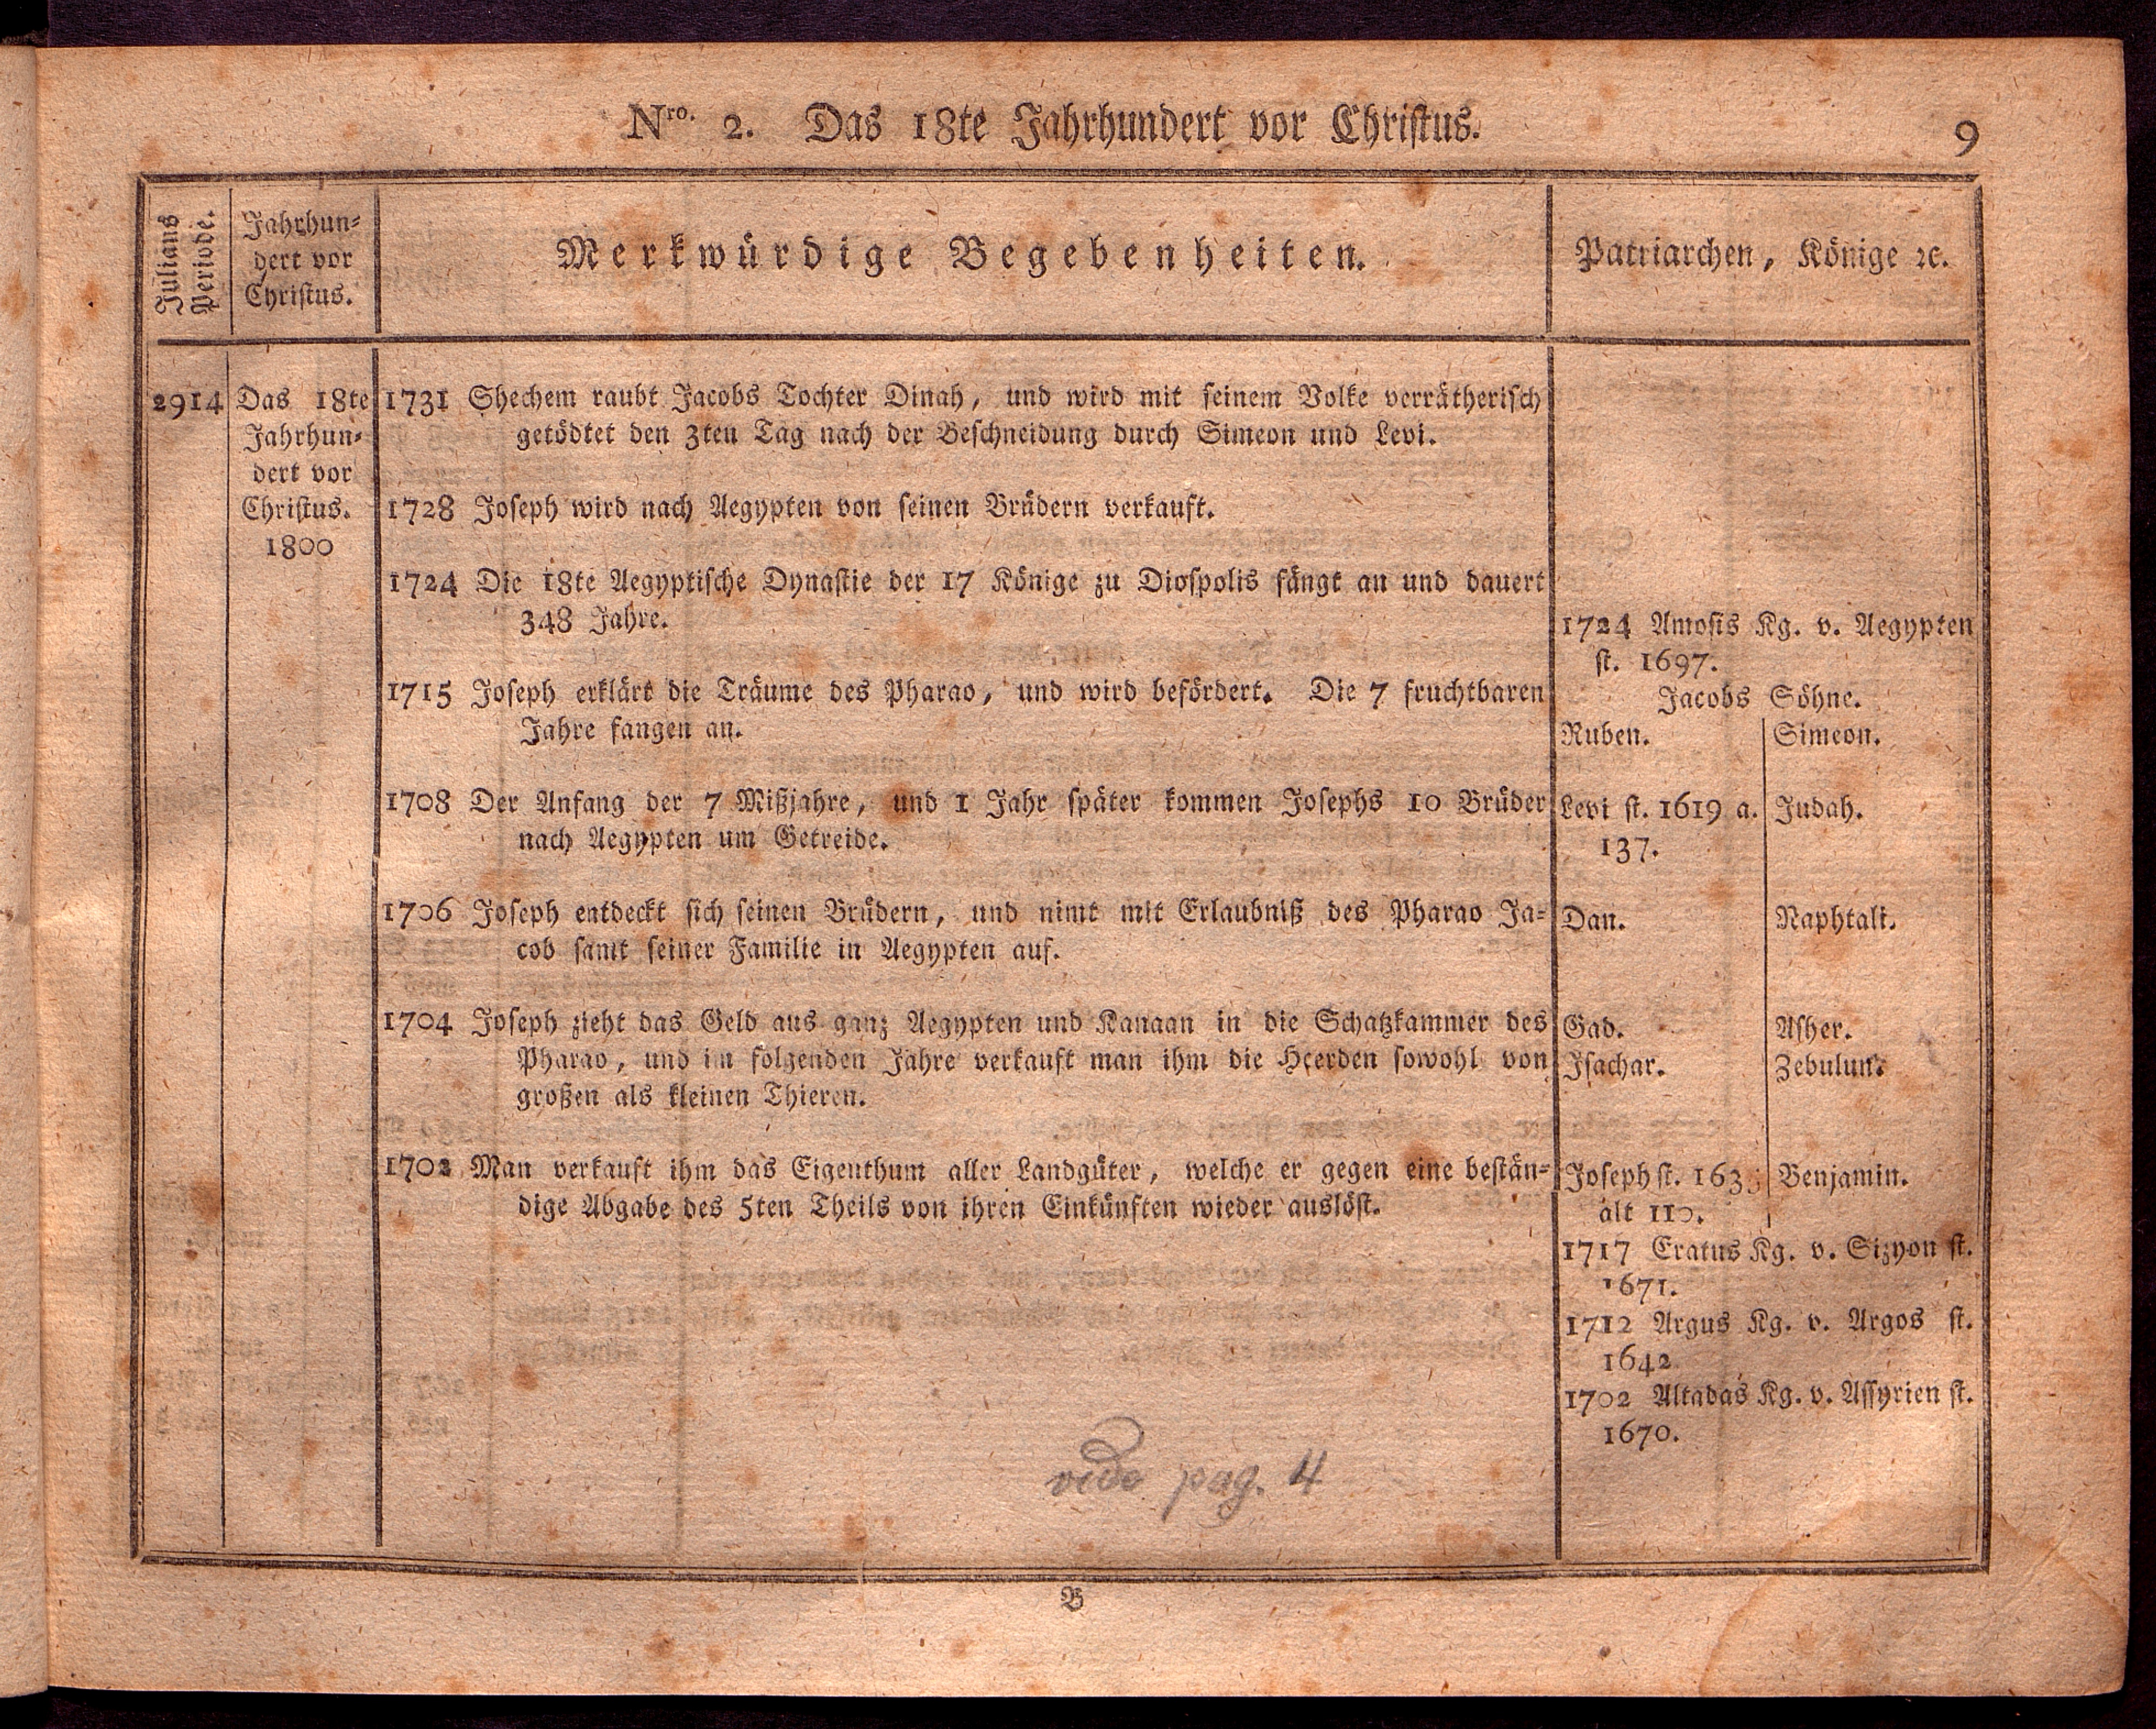 Nro. 2. Das 18te Jahrhundert vor Christus.
9
Julians Periode.
Jahrhun-
dert vor
Christus.
Merkwürdige Begebenheiten.
Patriarchen, Könige ꝛc.
2914
Das 18te
Jahrhun-
dert vor
Christus.
1800
1731 Shechem raubt Jacobs Tochter Dinah, und wird mit seinem Volke verrätherisch
getödtet den 3ten Tag nach der Beschneidung durch Simeon und Levi.
1728 Joseph wird nach Aegypten von seinen Brüdern verkauft.
1724 Die 18te Aegyptische Dynastie der 17 Könige zu Diospolis fängt an und dauert
348 Jahre.
1715 Joseph erklärt die Träume des Pharao, und wird befördert. Die 7 fruchtbaren
Jahre fangen an.
1708 Der Anfang der 7 Mißjahre, und 1 Jahr später kommen Josephs 10 Brüder
nach Aegypten um Getreide.
1706 Joseph entdeckt sich seinen Brüdern, und nimt mit Erlaubniß des Pharao Ja-
cob samt seiner Familie in Aegypten auf.
1704 Joseph zieht das Geld aus ganz Aegypten und Kanaan in die Schatzkammer des
Pharao, und im folgenden Jahre verkauft man ihm die Heerden sowohl von
großen als kleinen Thieren.
1702 Man verkauft ihm das Eigenthum aller Landgüter, welche er gegen eine bestän-
dige Abgabe des 5ten Theils von ihren Einkünften wieder auslöst.
1724 Amosis Kg. v. Aegypten
st. 1697.
Jacobs Söhne.
Ruben. Simeon.
Levi st. 1619 a. Judah.
137.
Dan. Naphtali.
Gad. Asher.
Isachar. Zebulun.
Joseph st. Benjamin.
alt 110.
1717 Eratus Kg. v. Sizyon st.
1671.
1712 Argus Kg. v. Argos st.
1642
1702 Altadas Kg. v. Assyrien st.
1670.
vide pag. 4
B